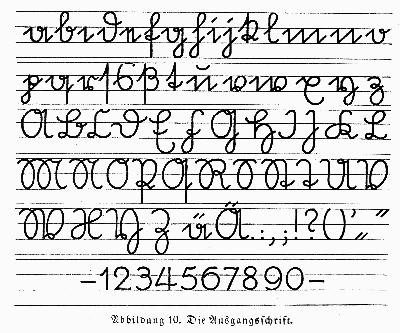 a b c d e f g h i j k l m n o
p q r ſ s ß t ŭ v w x y z
A B C D E F G H I J K L
M N O P Q R S T U V
W X Y Z ü Ä . : , ; ! ? ( ) ' „ “
– 1 2 3 4 5 6 7 8 9 0 –
Abbildung 10. Die Ausgangsſchrift.